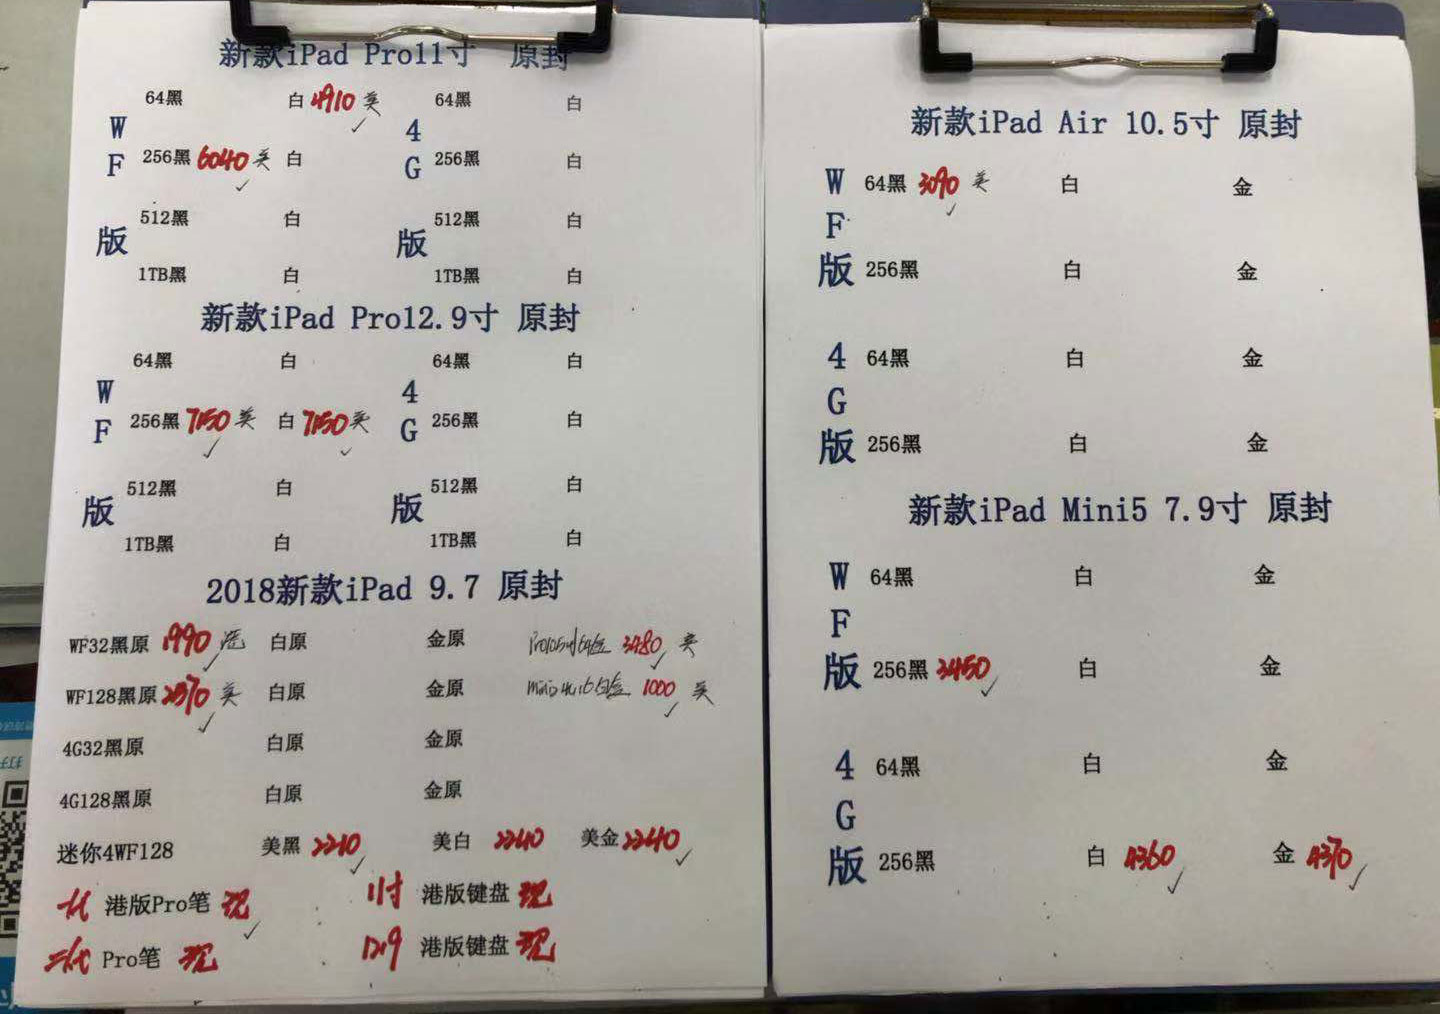 新款iPad Pro11寸 原封
WF版 4G版
64黑 白 4910 美 64黑 白
256黑 6040 美 白 256黑 白
512黑 白 512黑 白
1TB黑 白 1TB黑 白
新款iPad Pro12.9寸 原封
WF版 4G版
64黑 白 64黑 白
256黑 7150 美 白 7150 美 256黑 白
512黑 白 512黑 白
1TB黑 白 1TB黑 白
2018新款iPad 9.7 原封
WF32黑原 1990 白原 金原 3480 美
WF128黑原 2570 美 白原 金原 1000 美
4G32黑原 白原 金原
4G128黑原 白原 金原
迷你4WF128 美黑 2210 美白 2240 美金 2240
港版Pro笔 现 11寸 港版键盘 现
二代 Pro笔 现 12.9 港版键盘 现
新款iPad Air 10.5寸 原封
WF版
64黑 3090 美 白 金
256黑 白 金
4G版
64黑 白 金
256黑 白 金
新款iPad Mini5 7.9寸 原封
WF版
64黑 白 金
256黑 3450 白 金
4G版
64黑 白 金
256黑 白 4360 金 4370